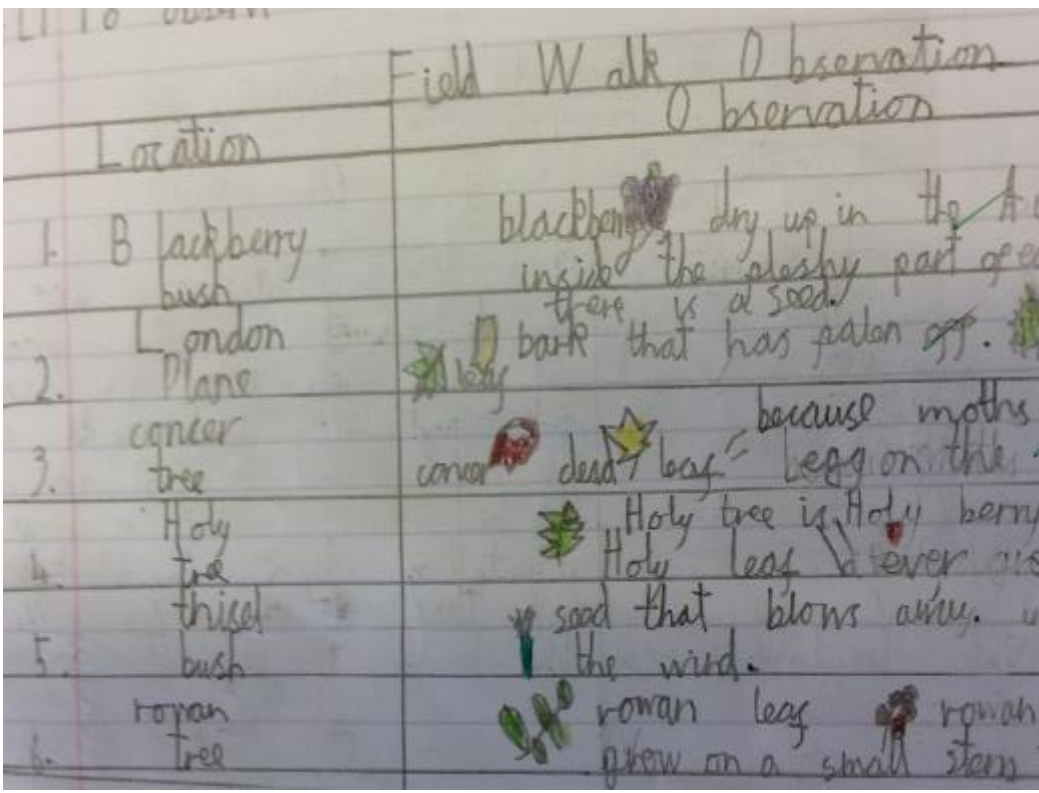 LI To observ
Field Walk Observation
Location
Observation
1. Blackberry
bush
blackberry dry up in the
inside the pleshy part of
there is a seed.
2. London
Plane
leaf bark that has falen off.
3. concer
tree
because moths
concer dead leaf legg on the
4. Holy
tree
Holy tree is Holy berry
Holy leaf ever
5. thisel
bush
seed that blows away.
the wind.
6. rowan
tree
rowan leaf rowan
grow on a small stem